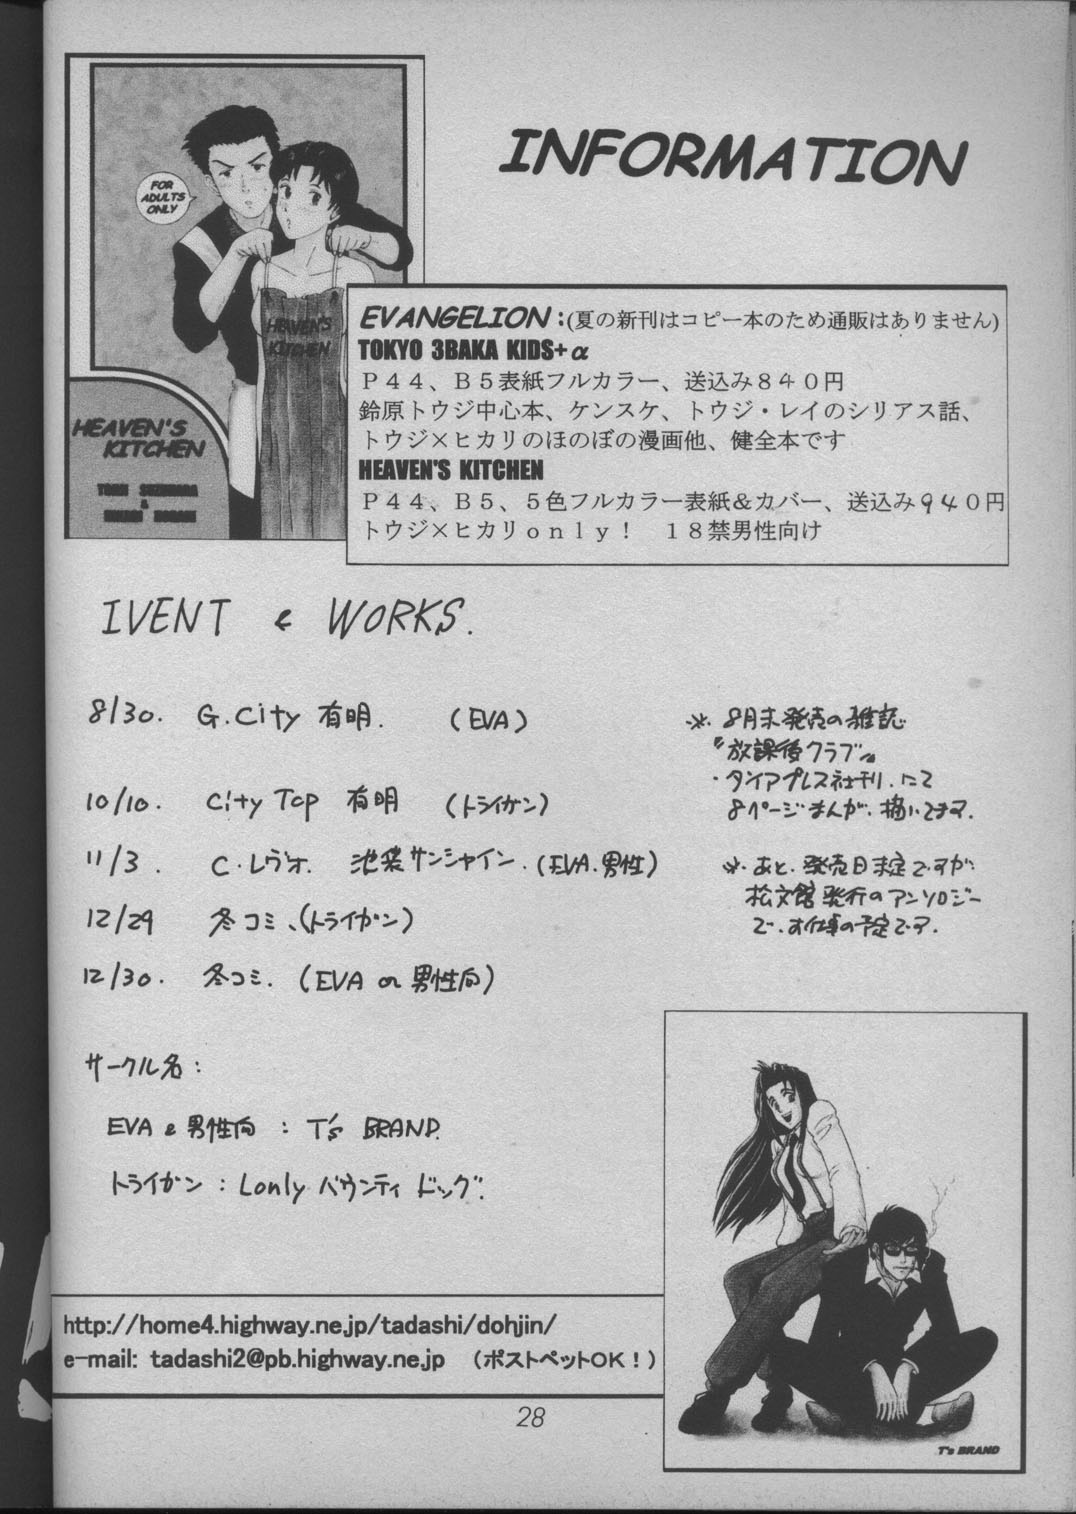 INFORMATION
FOR
ADULTS
ONLY
HEAVEN'S
KITCHEN
HEAVEN'S
KITCHEN
&
EVANGELION:(夏の新刊はコピー本のため通販はありません)
TOKYO 3BAKA KIDS+α
P44、B5表紙フルカラー、送込み840円
鈴原トウジ中心本、ケンスケ、トウジ・レイのシリアス話、
トウジ×ヒカリのほのぼの漫画他、健全本です
HEAVEN'S KITCHEN
P44、B5、5色フルカラー表紙&カバー、送込み940円
トウジ×ヒカリonly! 18禁男性向け
IVENT & WORKS.
8/30. G.City 有明. (EVA)
10/10. City Top 有明 (トライガン)
11/3. C.レヴォ. 池袋サンシャイン.(EVA.男性)
12/29 冬コミ、(トライガン)
12/30. 冬コミ. (EVA or 男性向)
※. 8月末発売の雑誌
『放課後クラブ』
・タイアプレス社刊.にて
8ページまんが.描いてます.
※.あと、発売日未定ですが
松文館発行のアンソロジー
で.お仕事の予定です.
サークル名:
EVA & 男性向 : T's BRAND.
トライガン : Lonly バウンティ ドッグ.
http://home4.highway.ne.jp/tadashi/dohjin/
e-mail: tadashi2@pb.highway.ne.jp (ポストペットOK!)
T's BRAND
28